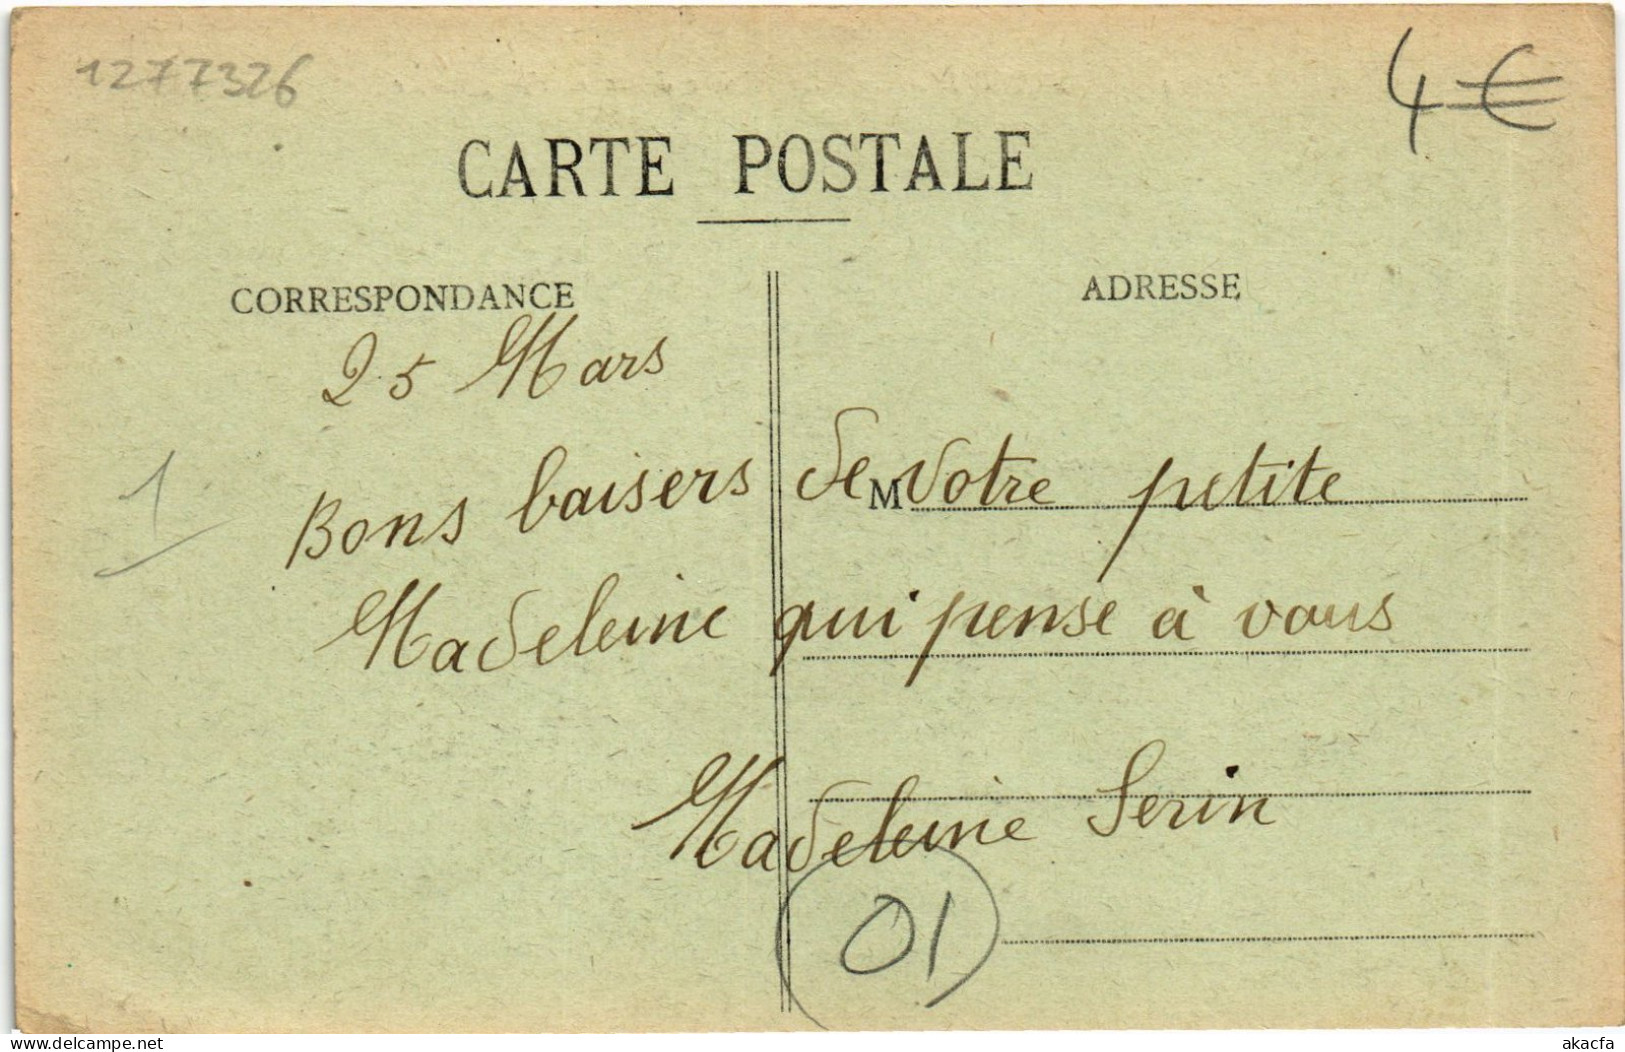 1277326
4 €
CARTE POSTALE
CORRESPONDANCE
ADRESSE
25 Mars
1
Bons baisers de M votre petite
Madeleine qui pense à vous
Madeleine Serin
01
delcampe.net
akacfa